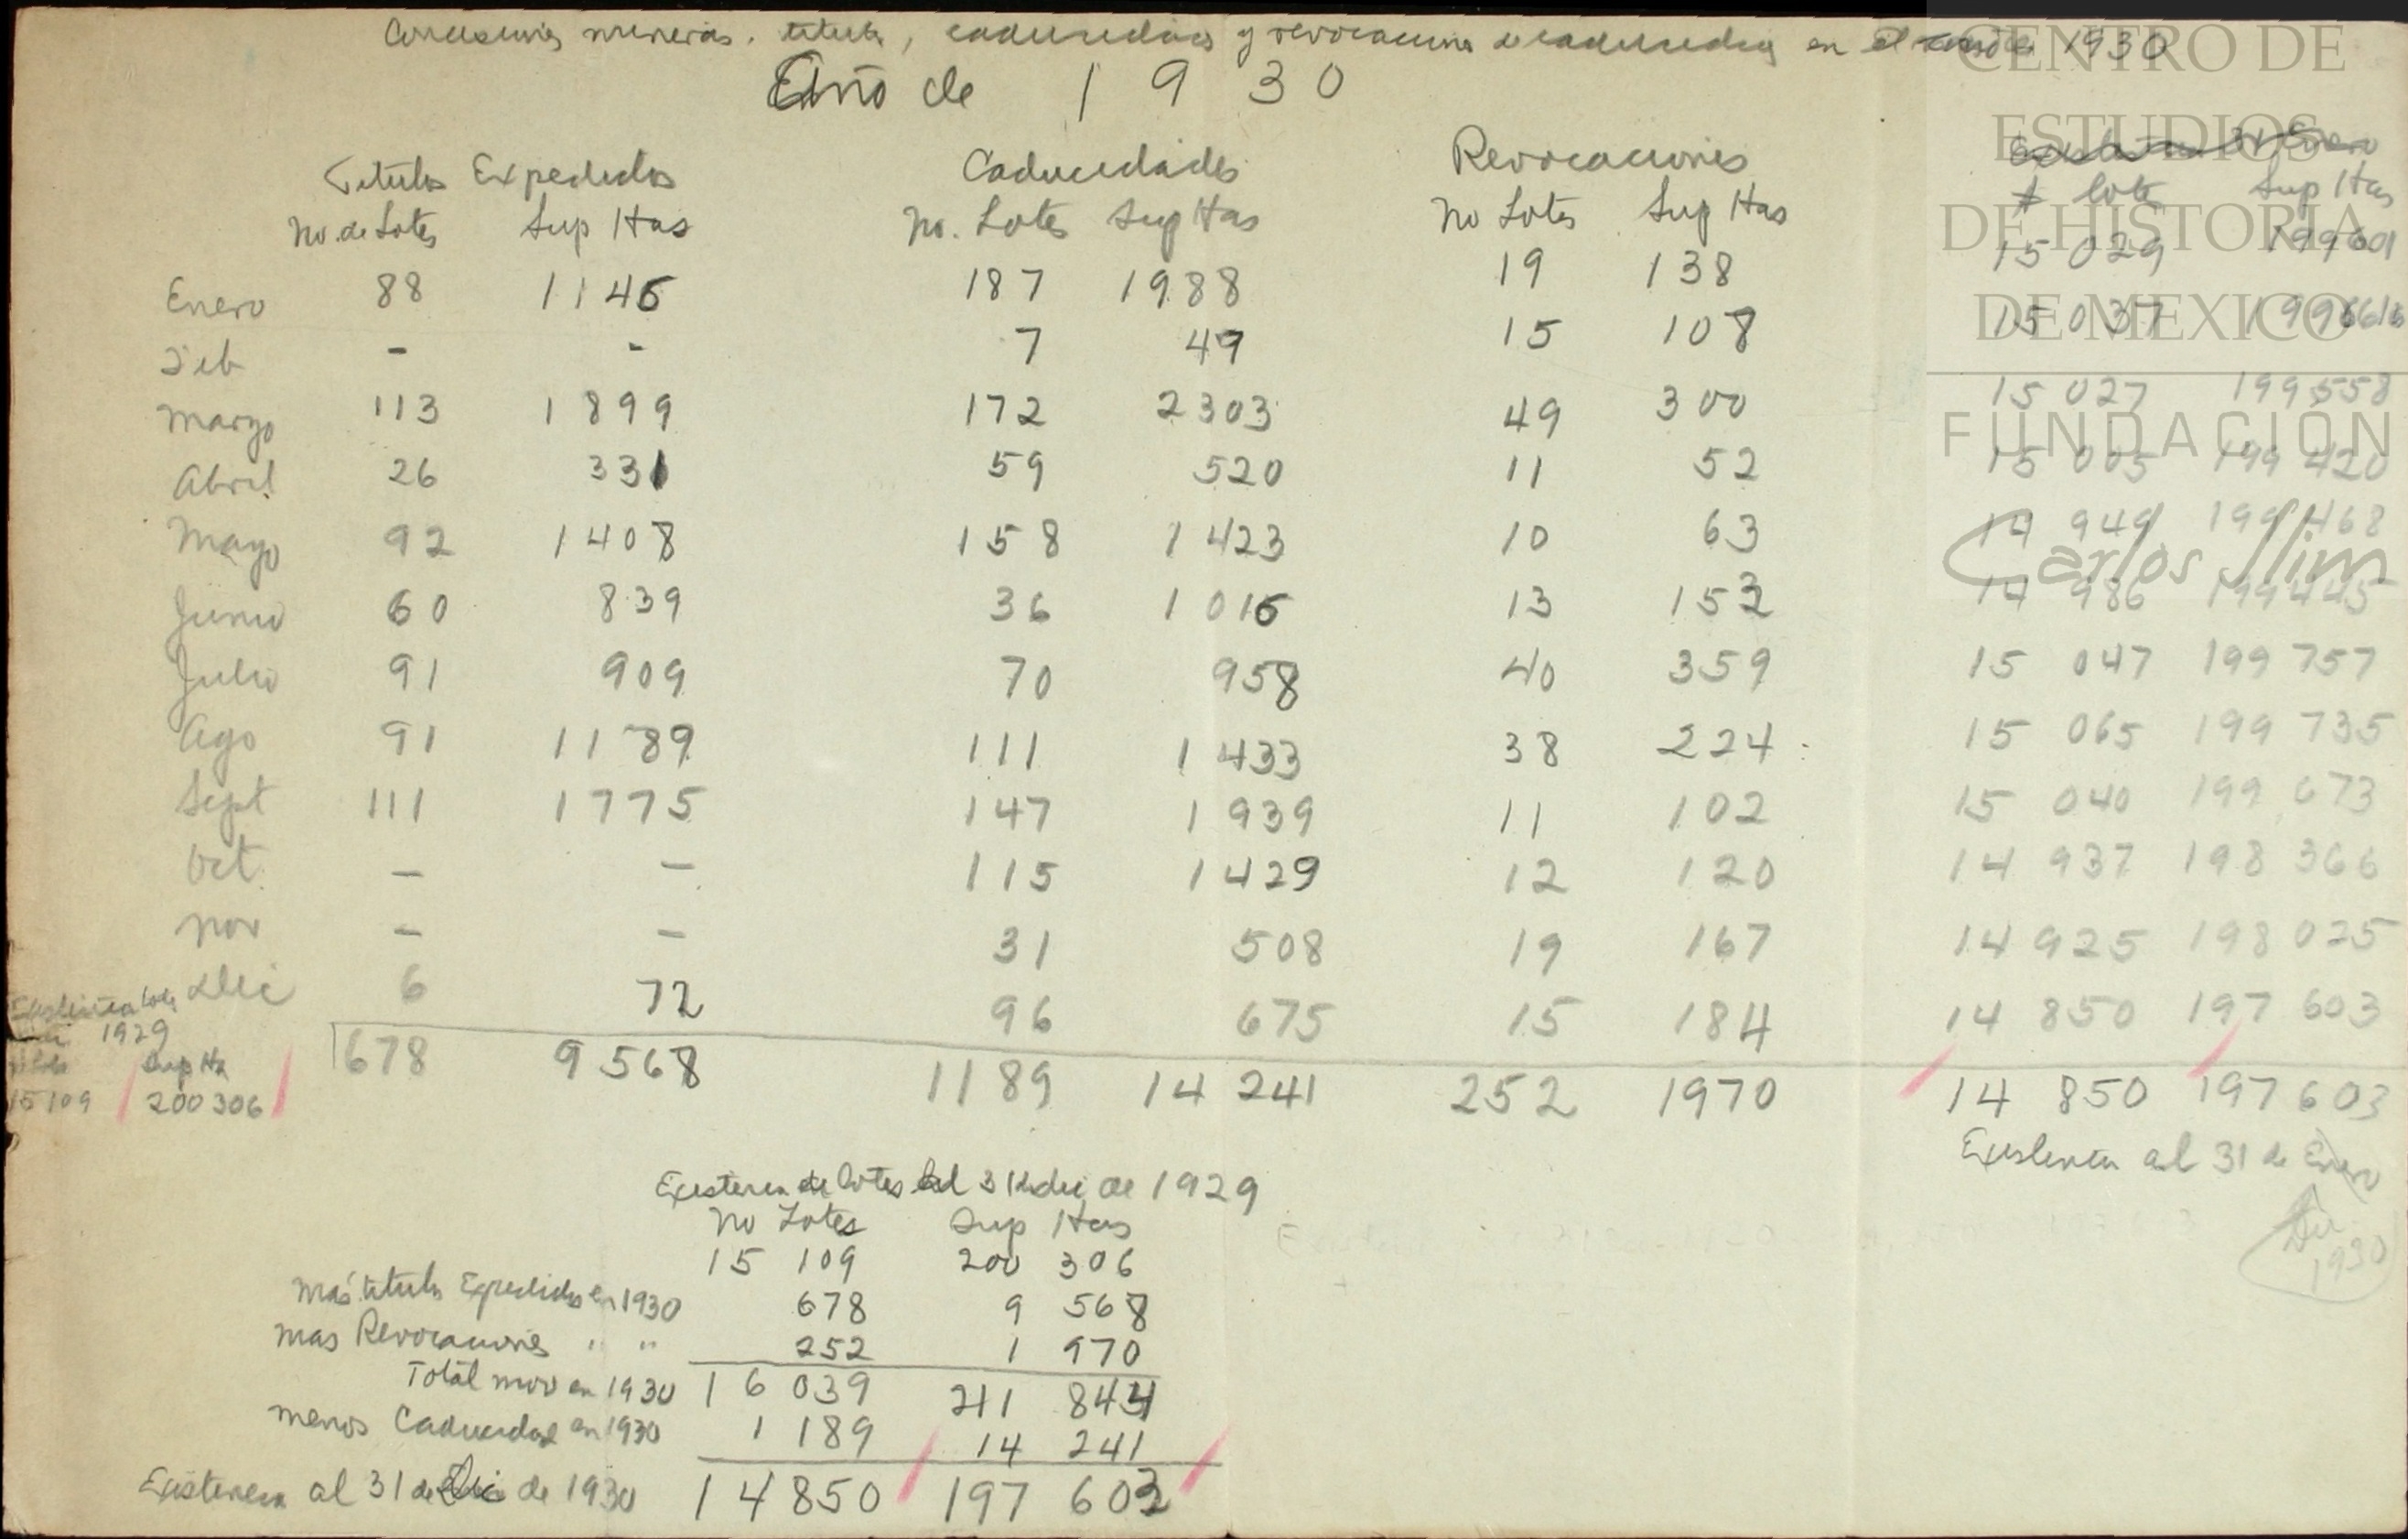 Concesiones mineras, titulos, caducidades y revocaciones de caducidades en el 1930
Año de 1930
Titulos Expedidos Caducidades Revocaciones
No. de Lotes Sup Has No. Lotes Sup Has No Lotes Sup Has # lotes Sup Has
Enero 88 1145 187 1988 19 138 15 029 199601
Feb - - 7 49 15 108 15 037
Marzo 113 1899 172 2303 49 300 15 027 199558
Abril 26 331 59 520 11 52 15 005 199 420
Mayo 92 1408 158 1423 10 63 14 949 199 468
Junio 60 839 36 1016 13 153 14 986 199445
Julio 91 909 70 958 40 359 15 047 199 757
Ago 91 1189 111 1433 38 224 15 065 199 735
Sept 111 1775 147 1939 11 102 15 040 199 673
Oct. - - 115 1429 12 120 14 937 198 366
Nov - - 31 508 19 167 14 925 198 025
Dic 6 72 96 675 15 184 14 850 197 603
678 9568 1189 14 241 252 1970 14 850 197 603
Existencia al 31 de Enero
Dic
1930
Existencia lotes
1929
Sup Ha
15109 200306
Existencia de lotes al 31 de dic de 1929
No Lotes Sup Has
15 109 200 306
Mas titulos Expedidos en 1930 678 9 568
Mas Revocaciones " " 252 1 970
Total mov en 1930 16 039 211 844
Menos Caducidad en 1930 1 189 14 241
Existencia al 31 de Dic de 1930 14850 197 603
CENTRO DE
ESTUDIOS
DE HISTORIA
DE MEXICO
FUNDACIÓN
Carlos Slim